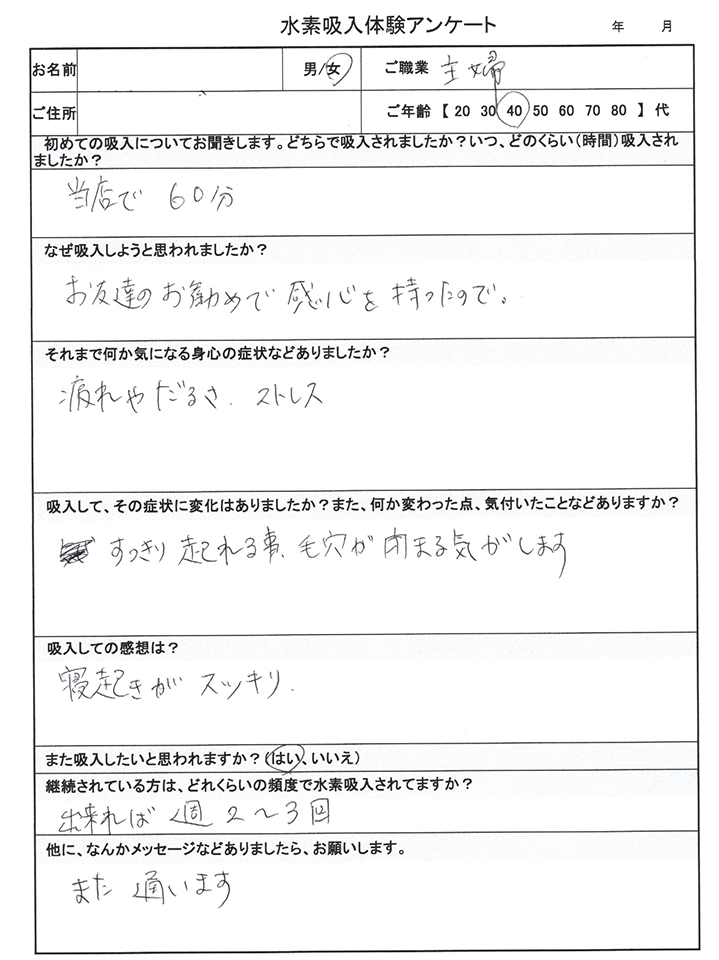 水素吸入体験アンケート 年 月
お名前 男/女 ご職業 主婦
ご住所 ご年齢 【 20 30 40 50 60 70 80 】 代
初めての吸入についてお聞きします。どちらで吸入されましたか？いつ、どのくらい（時間）吸入され
ましたか？
当店で 60分
なぜ吸入しようと思われましたか？
お友達のお勧めで 感心を 持ったので。
それまで何か気になる身心の症状などありましたか？
疲れやだるさ. ストレス
吸入して、その症状に変化はありましたか？また、何か変わった点、気付いたことなどありますか？
すっきり 起れる事、毛穴が 閉まる気がします
吸入しての感想は？
寝起きが スッキリ.
また吸入したいと思われますか？（はい、いいえ）
継続されている方は、どれくらいの頻度で水素吸入されてますか？
出来れば 週 2～3回
他に、なんかメッセージなどありましたら、お願いします。
また 通います